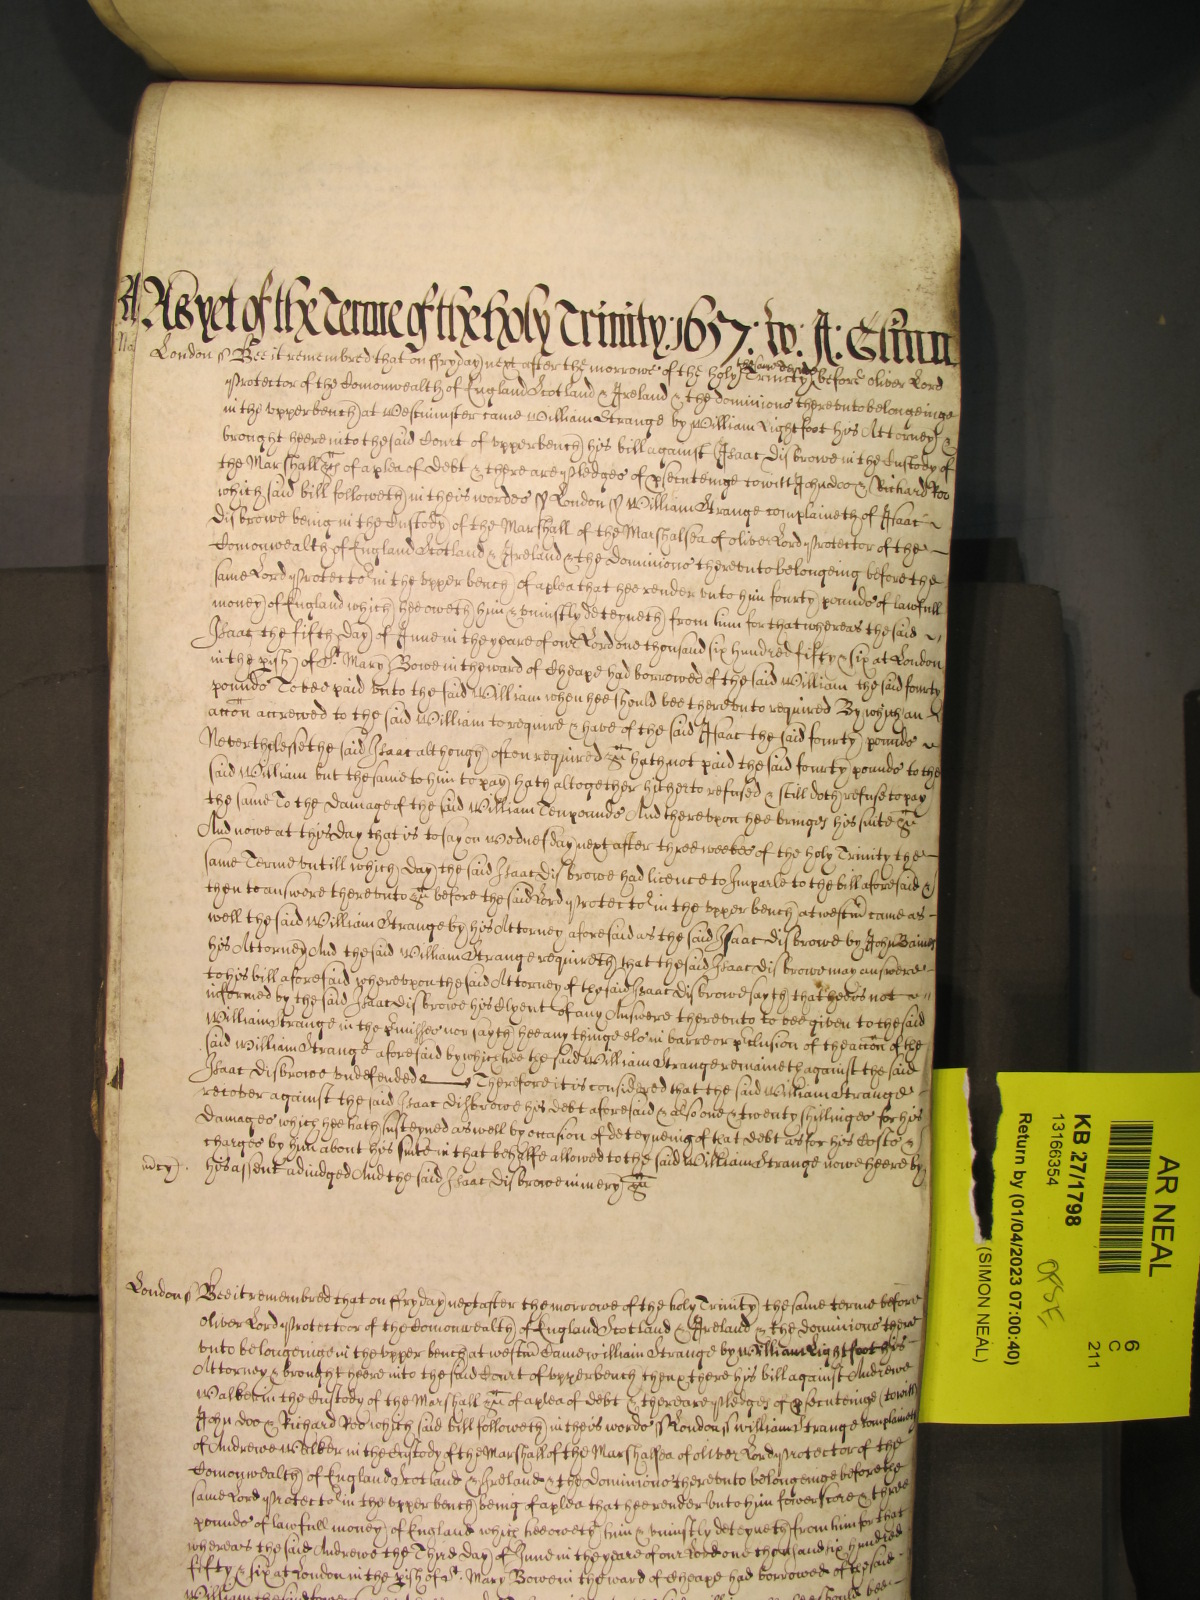 As yet of the Terme of the holy Trinity: 1657: W: A: Glinn
London ss Bee it remembred that on ffryday next after the morrowe of the holy Trinity the same terme before Oliver Lord
Protector of the Comonwealth of England Scotland & Ireland & the dominions thereunto belongeinge
in the upper bench at Westminster came William Strange by William Lightfoot his Attorney &
brought heere into the said Court of upper bench his bill against Isaac Disbrowe in the Custody of
the Marshall &c of a plea of Debt & there are pledges of psecuteinge to witt John doo & Richard Roo
which said bill followeth in theis wordes ss London ss William Strange complaineth of Isaac
Disbrowe being in the Custody of the Marshall of the Marshalsea of Oliver Lord Protector of the
Comonwealth of England Scotland & Ireland & the Dominions thereunto belongeing before the
same Lord Protector in the upper bench of a plea that hee render unto him fourty pounds of lawfull
money of England which hee oweth him & uniustly deteyneth from him for that whereas the said
Isaac the fifth Day of June in the yeare of our Lord one thousand six hundred fifty & six at London
in the pish of St Mary Bowe in the ward of Cheape had borrowed of the said William the said fourty
pounds To bee paid unto the said William when hee should bee thereunto required By which an
accon accrewed to the said William to require & have of the said Isaac the said fourty pounds
Neverthelesse the said Isaac although often required &c hath not paid the said fourty pounds to the
said William but the same to him to pay hath altogether hitherto refused & still doth refuse to pay
the same To the Damage of the said William Ten pounds And thereupon hee bringes his suite &c
And nowe at this Day that is to say on Wednesday next after three weekes of the holy Trinity the
same Terme untill which Day the said Isaac Disbrowe had licence to Imparle to the bill aforesaid &
then to answere thereunto &c before the said Lord Protector in the upper bench at westm came as
well the said William Strange by his Attorney aforesaid as the said Isaac Disbrowe by John Baines
his Attorney And the said William Strange requireth that the said Isaac Disbrowe may answere
to his bill aforesaid whereupon the said Attorney of the said Isaac Disbrowe sayth that hee is not
informed by the said Isaac Disbrowe his Clyent of any Answere thereunto to bee given to the said
William Strange in the pmisses nor sayth hee any thinge els in barre or pclusion of the accon of the
said William Strange aforesaid by which hee the said William Strange remaineth against the said
Isaac Disbrowe undefended Therefore it is considered that the said William Strange
recover against the said Isaac Disbrowe his Debt aforesaid & also one & twenty shillinges for his
Damages which hee hath susteyned as well by occasion of deteyneing of that debt as for his Costs &
charges by him about his suite in that behalfe allowed to the said William Strange nowe heere by
mcy. his assent adiudged And the said Isaac Disbrowe in mercy &c
London ss Bee it remembred that on ffryday next after the morrowe of the holy Trinity the same terme before
Oliver Lord Protector of the Comonwealth of England Scotland & Ireland & the dominions there
unto belongeinge in the upper bench at westm Came william Strange by William Lightfoot his
Attorney & brought heere into the said Court of upper bench then & there his bill against Andrewe
Walker in the Custody of the Marshall &c of a plea of debt & there are pledges of psecuteinge to witt
John doo & Richard Roo which said bill followeth in theis wordes ss London ss william Strange complaineth
of Andrewe Walker in the Custody of the Marshall of the Marshalsea of Oliver Lord Protector of the
Comonwealth of England Scotland & Ireland & the Dominions thereunto belongeinge before the
same Lord Protector in the upper bench being of a plea that hee render unto him fower score & three
pounds of lawfull money of England which hee oweth him & uniustly deteyneth from him for that
whereas the said Andrewe the Third Day of June in the yeare of our Lord one thousand six hundred
fifty & six at London in the pish of St. Mary Bowe in the ward of Cheape had borrowed of the said
AR NEAL
6
C
211
KB 27/1798
13166354
Return by (01/04/2023 07:00:40)
(SIMON NEAL)